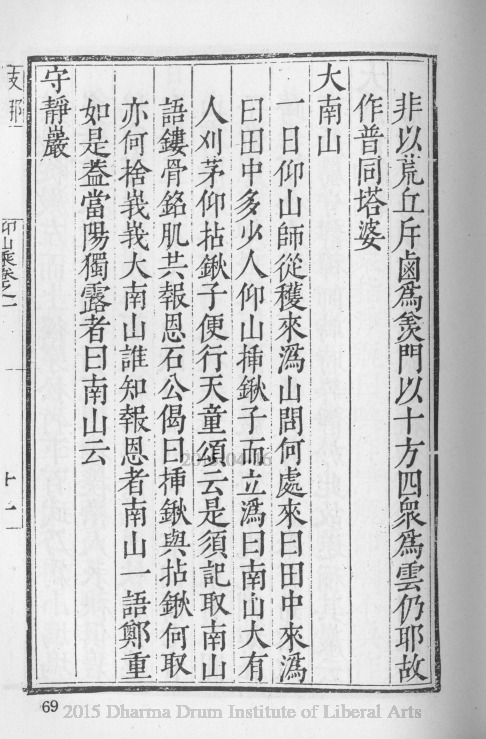 非以荒丘斥鹵爲羡門以十方四衆爲雲仍耶故
作普同塔婆
大南山
一日仰山師從穫來潙山問何處來曰田中來潙
曰田中多少人仰山揷鍬子而立潙曰南山大有
人刈茅仰拈鍬子便行天童頌云是須記取南山
語鏤骨銘肌共報恩石公偈曰揷鍬與拈鍬何取
亦何捨峩峩大南山誰知報恩者南山一語鄭重
如是葢當陽獨露者曰南山云
守靜巖
仰山乘卷之二
十一
69 2015 Dharma Drum Institute of Liberal Arts